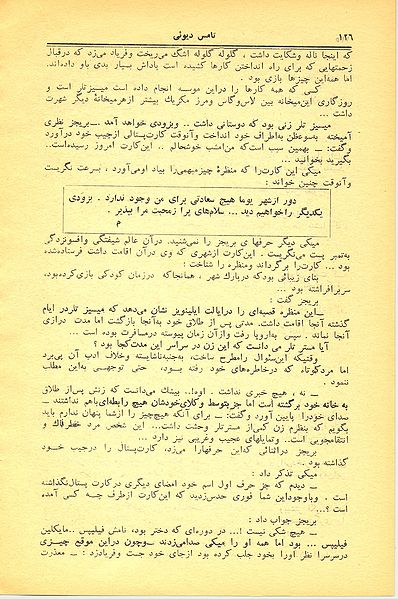 ۱۲۶ تامس دیوئی
که اینجا ناله وشکایت داشت ، گلوله گلوله اشک میریخت وفریاد میزد که درقبال
زحمتهایی که برای راه انداختن کارها کشیده است پاداش بسیار بدی باو داده‌اند.
اما همه‌این چیزها بازی بود .
کسی که همه کارها را دراین موسسه انجام داده است میسیزتلر است و
روزگاری این‌میخانه بین لاس‌وگاس ومرز مکزیک بیشتر ازهرمیخانهٔ دیگر شهرت
داشت ...
میسیز تلر زنی بود که دوستانی داشت .. وبزودی خواهد آمد ـــ بریجز نظری
آمیخته به‌سوءظن به‌اطراف خود انداخت وآنوقت کارت‌پستالی ازجیب خود درآورد
وگفت: ـــ بهمین سبب است‌که من‌امشب خوشحالم .. این‌کارت امروز رسیده‌است.
بگیرید بخوانید ...
میکی این کارت‌را که منظرهٔ چیزمبهمی‌را بیاد اومی‌آورد ، بسرعت نگریست
وآنوقت چنین خواند :
دور ازشهر یوما هیچ سعادتی برای من وجود ندارد . بزودی
یکدیگر راخواهیم دید ... سلام‌های پرا زمحبت مرا بپذیر .
م
میکی دیگر حرفهای بریجز را نمی‌شنید. درآن عالم شیفتگی وافسونزدگی
به‌تمبر پست می‌نگریست . این‌کارت ازشهری که وی درآن اقامت داشت فرستاده‌شده
بود ... کارت‌را برگرداند ومنظره را شناخت :
بنای زیبائی بودکه درپارک شهر ، همانجاکه درزمان کودکی بازی‌کرده‌بود،
سربرافراشته بود ...
بریجز گفت :
ـــ این منظره قصبه‌ای را درایالت ایلینویز نشان می‌دهد که میسیز تلردر ایام
گذشته آنجا اقامت داشت. مدتی پس از طلاق خود به‌آنجا بازگشت اما مدت درازی
آنجا نماند . سپس به‌اروپا رفت وازآن زمان پیوسته درمسافرت بوده است ...
آیا مستر تلر می دانست که این زن در سراسر این مدت‌کجا بود ؟
وقتیکه این‌سئوال رامطرح ساخت، به‌جنبه‌ناشایسته وخلاف ادب آن پی‌برد
اما مردکوتاه که درخاطره‌های خود رفته بود، حتی توجهی به‌این مطلب
ننمود .
ـــ نه ، هیچ خبری نداشت . اوه!.. بیشک می‌دانست که زنش پس‌ازطلاق
به خانه خود برگشته است اما جزبتوسط وکلای‌خودشان هیچ رابطه‌ای‌باهم نداشتند ـــ
صدای خودرا پائین آورد وگفت: ـــ برای آنکه هیچ‌چیز را ازشما پنهان ندارم باید
بگویم که بنظرم زن کمی‌از مستر‌تلر وحشت داشت... این شخص مرد خطرناک و
انتقامجویی است.. وتمایلهای عجیب وغریبی نیز دارد ...
بریجز درائنائی که‌این حرفهارا می‌زد، کارت‌پستال را درجیب خود
گذاشته بود .
میکی تذکر داد :
ـــ دیدم که جز حرف اول اسم خود امضای دیگری درکارت پستال‌نگذاشته
است . وباوجوداین شما فوری حدس‌زدید که این‌کارت ازطرف چه کسی آمده
است ؟...
بریجز جواب داد :
ـــ هیچ شکی نیست !... در دوره‌ای که دختر بود، نامش فیلیپس ..مایکلین
فیلیپس ... بود اما همه او را میکی صدامی‌زدند ـــ وچون دراین موقع چیزی
درسرسرا نظر اورا بخود جلب کرده بود ازجای خود جست وفریادزد : ـــ معذرت